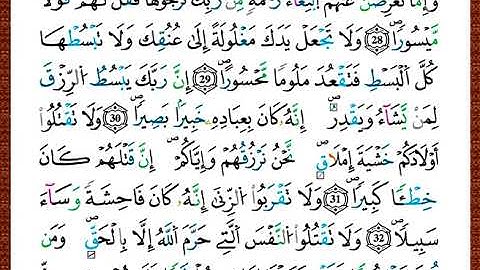 وَإِمَّا تُعْرِضَنَّ عَنْهُمُ ٱبْتِغَآءَ رَحْمَةٍ مِّن رَّبِّكَ تَرْجُوهَا فَقُل لَّهُمْ قَوْلًا
مَّيْسُورًا ﴿28﴾ وَلَا تَجْعَلْ يَدَكَ مَغْلُولَةً إِلَىٰ عُنُقِكَ وَلَا تَبْسُطْهَا
كُلَّ ٱلْبَسْطِ فَتَقْعُدَ مَلُومًا مَّحْسُورًا ﴿29﴾ إِنَّ رَبَّكَ يَبْسُطُ ٱلرِّزْقَ
لِمَن يَشَآءُ وَيَقْدِرُ إِنَّهُۥ كَانَ بِعِبَادِهِۦ خَبِيرًۢا بَصِيرًا ﴿30﴾ وَلَا تَقْتُلُوٓا۟
أَوْلَٰدَكُمْ خَشْيَةَ إِمْلَٰقٍ نَّحْنُ نَرْزُقُهُمْ وَإِيَّاكُمْ إِنَّ قَتْلَهُمْ كَانَ
خِطْـًٔا كَبِيرًا ﴿31﴾ وَلَا تَقْرَبُوا۟ ٱلزِّنَىٰٓ إِنَّهُۥ كَانَ فَٰحِشَةً وَسَآءَ
سَبِيلًا ﴿32﴾ وَلَا تَقْتُلُوا۟ ٱلنَّفْسَ ٱلَّتِى حَرَّمَ ٱللَّهُ إِلَّا بِٱلْحَقِّ وَمَن